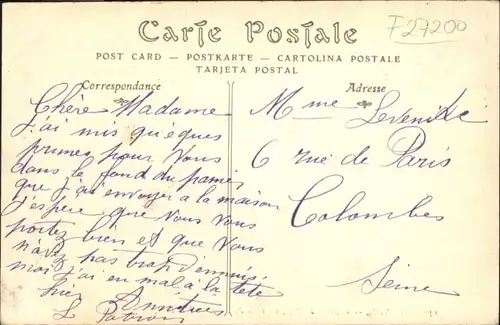 F27200
Carte Postale
POST CARD — POSTKARTE — CARTOLINA POSTALE
TARJETA POSTAL
Correspondance
Chère Madame
J'ai mis quéques
prunes pour Vous
dans le fond du panier
que j'ai envoyer a la maison
J'espère que Vous Vous
portez bien et que Vous
n'avez pas trop d'ennuis,
moi j'ai eu mal à la tete
hier
Adresse
Mme
6 rue de Paris
Colombes
Seine